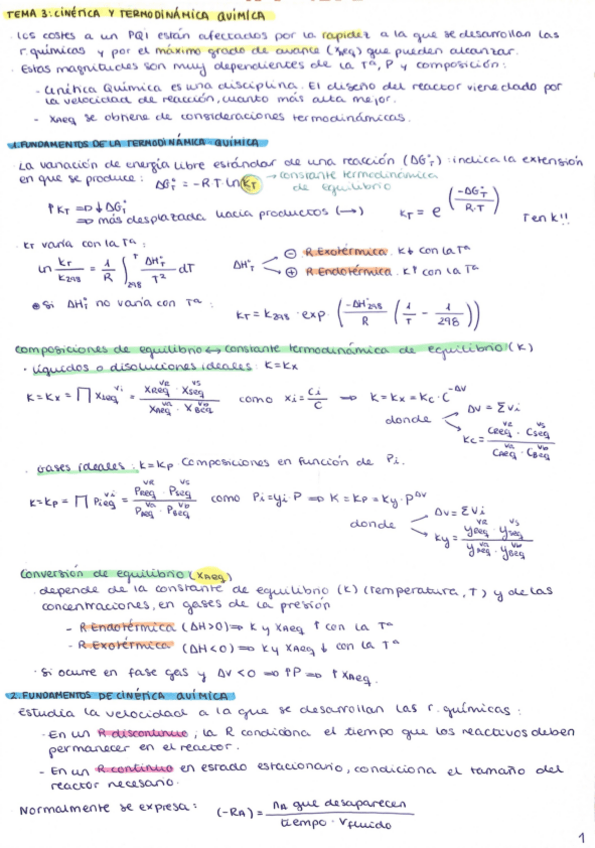 TEMA 3: CINÉTICA Y TERMODINÁMICA QUÍMICA
· Los costes a un PQI están afectados por la rapidez a la que se desarrollan las
r. químicas y por el máximo grado de avance (Xaeq) que pueden alcanzar.
· Estas magnitudes son muy dependientes de la Tª, P y composición:
- Cinética Química es una disciplina. El diseño del reactor viene dado por
la velocidad de reacción, cuanto más alta mejor.
- XAEQ se obtiene de consideraciones termodinámicas.
1. FUNDAMENTOS DE LA TERMODINÁMICA QUÍMICA
· La variación de energía libre estándar de una reacción (ΔG°T): indica la extensión
en que se produce: ΔG°T = -R·T·ln KT → constante termodinámica
de equilibrio
↑KT ⇒ ↓ΔG°T
⇒ más desplazada hacia productos (→) KT = e^(-ΔG°T / R·T) T en K!!
· KT varía con la Tª:
ln KT/K298 = 1/R ∫298^T ΔH°T/T² dT ΔH°T
⊖ R. Exotérmica. K↓ con la Tª
⊕ R. Endotérmica. K↑ con la Tª
Si ΔH°T no varía con Tª: KT = K298 · exp (-ΔH°298/R (1/T - 1/298))
composiciones de equilibrio ↔ constante termodinámica de equilibrio (K)
· Líquidos o disoluciones ideales: K=Kx
K = Kx = ∏ Xieq^νi = XReq^νR · XSeq^νS / XAeq^νA · XBeq^νB como xi = Ci/C ⇒ K = Kx = Kc · C^-Δν
donde Δν = Σνi
Kc = CReq^νR · CSeq^νS / CAeq^νA · CBeq^νB
· Gases ideales: K=Kp. Composiciones en función de Pi.
K = Kp = ∏ Pieq^νi = PReq^νR · PSeq^νS / PAeq^νA · PBeq^νB como Pi = yi·P ⇒ K = Kp = Ky · P^Δν
donde Δν = Σνi
Ky = yReq^νR · ySeq^νS / yAeq^νA · yBeq^νB
Conversión de equilibrio (XAeq)
· depende de la constante de equilibrio (K) (temperatura, T) y de las
concentraciones, en gases de la presión
- R Endotérmica (ΔH>0) ⇒ K y XAeq ↑ con la Tª
- R. Exotérmica (ΔH<0) ⇒ K y XAeq ↓ con la Tª
· Si ocurre en fase gas y Δν<0 ⇒ ↑P ⇒ ↑XAeq.
2. FUNDAMENTOS DE CINÉTICA QUÍMICA
Estudia la velocidad a la que se desarrollan las r. químicas:
· En un R discontinuo, la R condiciona el tiempo que los reactivos deben
permanecer en el reactor.
- En un R continuo en estado estacionario, condiciona el tamaño del
reactor necesario.
· Normalmente se expresa: (-RA) = nA que desaparecen / tiempo · Vfluido
1